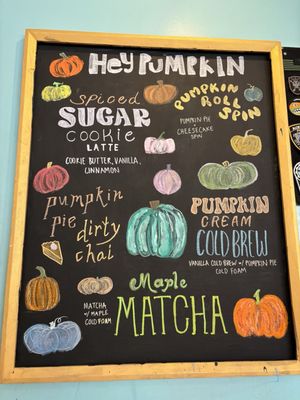 Hey Pumpkin
spiced
SUGAR
cookie
LATTE
COOKIE BUTTER, VANILLA,
CINNAMON
PUMPKIN
ROLL
SPIN
PUMPKIN PIE
+
CHEESECAKE
SPIN
pumpkin
pie
dirty
chai
PUMPKIN
CREAM
COLD BREW
VANILLA COLD BREW w/ PUMPKIN PIE
COLD FOAM
Maple
MATCHA
MATCHA
w/ MAPLE
COLD FOAM